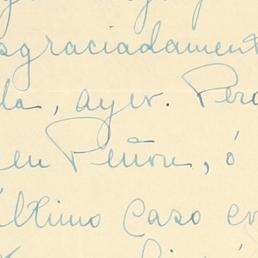 sgraciadament
da, ayer. Pero
en Peñon, ó
último caso en